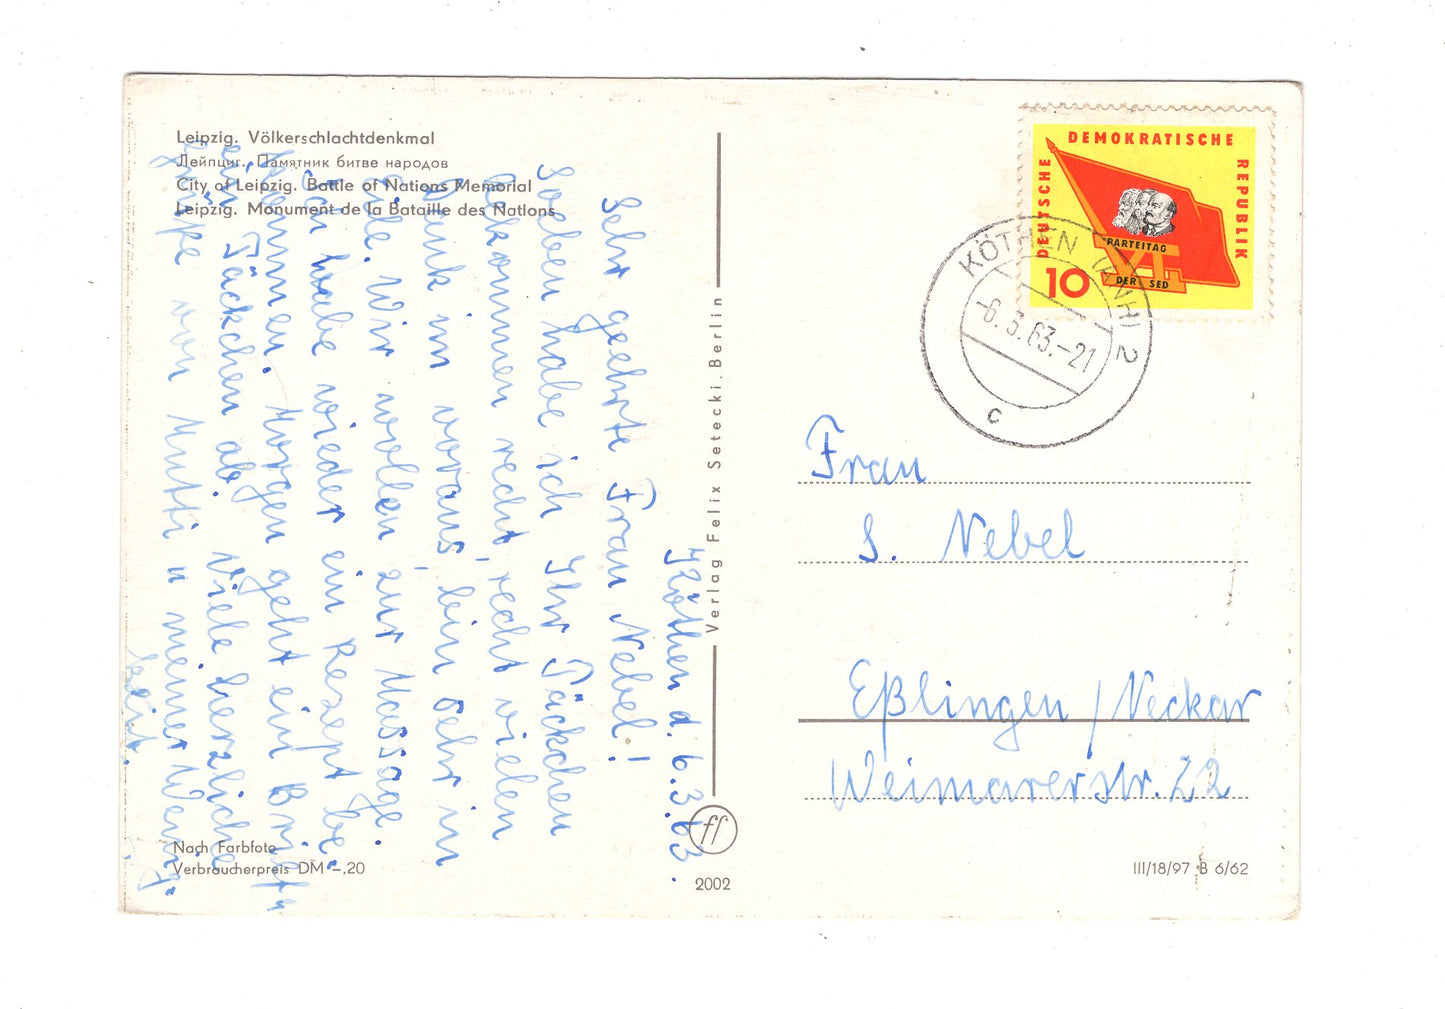 Leipzig. Völkerschlachtdenkmal
Лейпциг. Памятник битве народов
City of Leipzig. Battle of Nations Memorial
Leipzig. Monument de la Bataille des Nations
Köthen d. 6.3.63.
Sehr geehrte Frau Nebel!
Soeben habe ich Ihr Päckchen
bekommen recht, recht vielen
Dank im voraus, bin sehr in
Eile. Wir wollen zur Massage.
Ich habe wieder ein Rezept be-
kommen. Morgen geht ein Brief u
ein Päckchen ab. Viele herzliche
Grüße von Mutti u meiner Wenig-
keit.
Nach Farbfoto
Verbraucherpreis DM -,20
Verlag Felix Setecki. Berlin
ff
2002
DEUTSCHE
DEMOKRATISCHE
REPUBLIK
PARTEITAG
VI
DER SED
10
KÖTHEN (ANH) 2
-6.3.63.-21
c
Frau
S. Nebel
Eßlingen / Neckar
Weimarerstr. 22
III/18/97 B 6/62